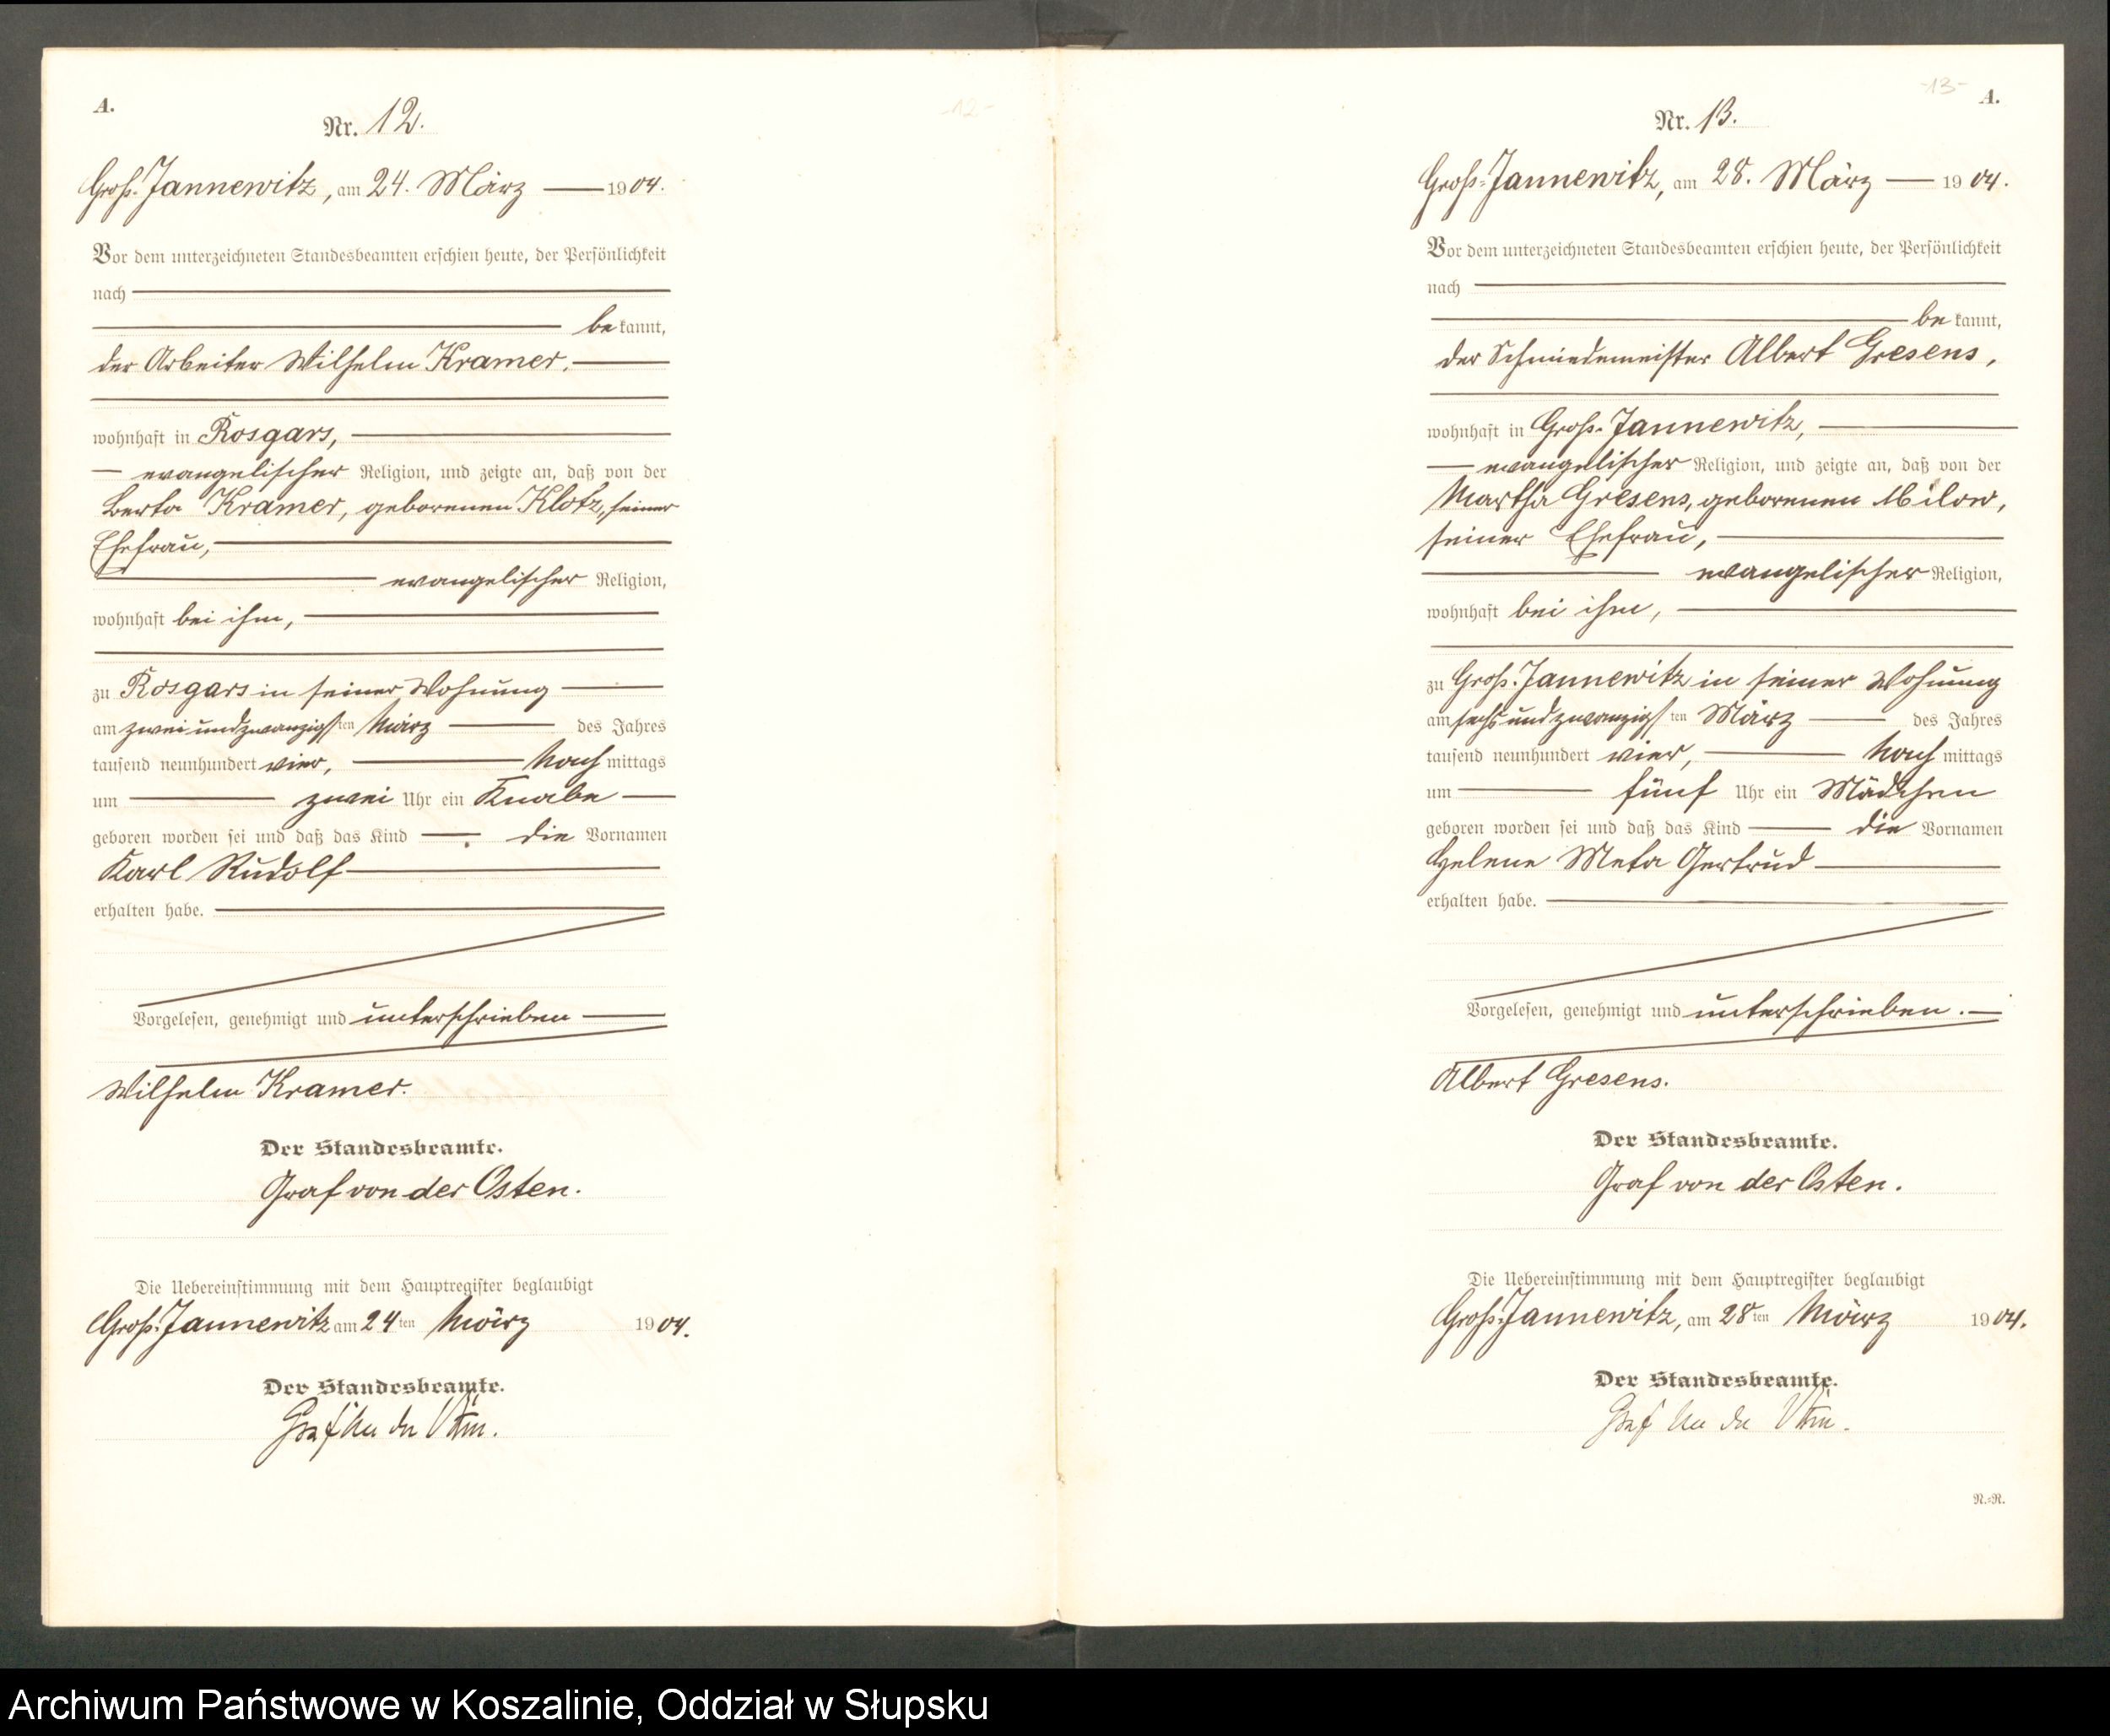 A.
Nr. 12.
Groß-Jannewitz, am 24. März 1904.
Vor dem unterzeichneten Standesbeamten erschien heute, der Persönlichkeit
nach
bekannt,
der Arbeiter Wilhelm Kramer,
wohnhaft in Rosgars,
evangelischer Religion, und zeigte an, daß von der
Berta Kramer, geborenen Klotz, seiner
Ehefrau,
evangelischer Religion,
wohnhaft bei ihm,
zu Rosgars in seiner Wohnung
am zwei und zwanzigsten März des Jahres
tausend neunhundert vier, Nachmittags
um zwei Uhr ein Knabe
geboren worden sei und daß das Kind die Vornamen
Karl Rudolf
erhalten habe.
Vorgelesen, genehmigt und unterschrieben
Wilhelm Kramer.
Der Standesbeamte.
Graf von der Osten.
Die Uebereinstimmung mit dem Hauptregister beglaubigt
Groß-Jannewitz am 24ten März 1904.
Der Standesbeamte.
Graf von der Osten.
-12-
-13-
A.
Nr. 13.
Groß-Jannewitz, am 28. März 1904.
Vor dem unterzeichneten Standesbeamten erschien heute, der Persönlichkeit
nach
bekannt,
der Schmiedemeister Albert Gresens,
wohnhaft in Groß-Jannewitz,
evangelischer Religion, und zeigte an, daß von der
Martha Gresens, geborenen Milow,
seiner Ehefrau,
evangelischer Religion,
wohnhaft bei ihm,
zu Groß-Jannewitz in seiner Wohnung
am sechs und zwanzigsten März des Jahres
tausend neunhundert vier, Nachmittags
um fünf Uhr ein Mädchen
geboren worden sei und daß das Kind die Vornamen
Helene Meta Gertrud
erhalten habe.
Vorgelesen, genehmigt und unterschrieben.
Albert Gresens.
Der Standesbeamte.
Graf von der Osten.
Die Uebereinstimmung mit dem Hauptregister beglaubigt
Groß-Jannewitz, am 28ten März 1904.
Der Standesbeamte.
Graf von der Osten.
N.=R.
Archiwum Państwowe w Koszalinie, Oddział w Słupsku